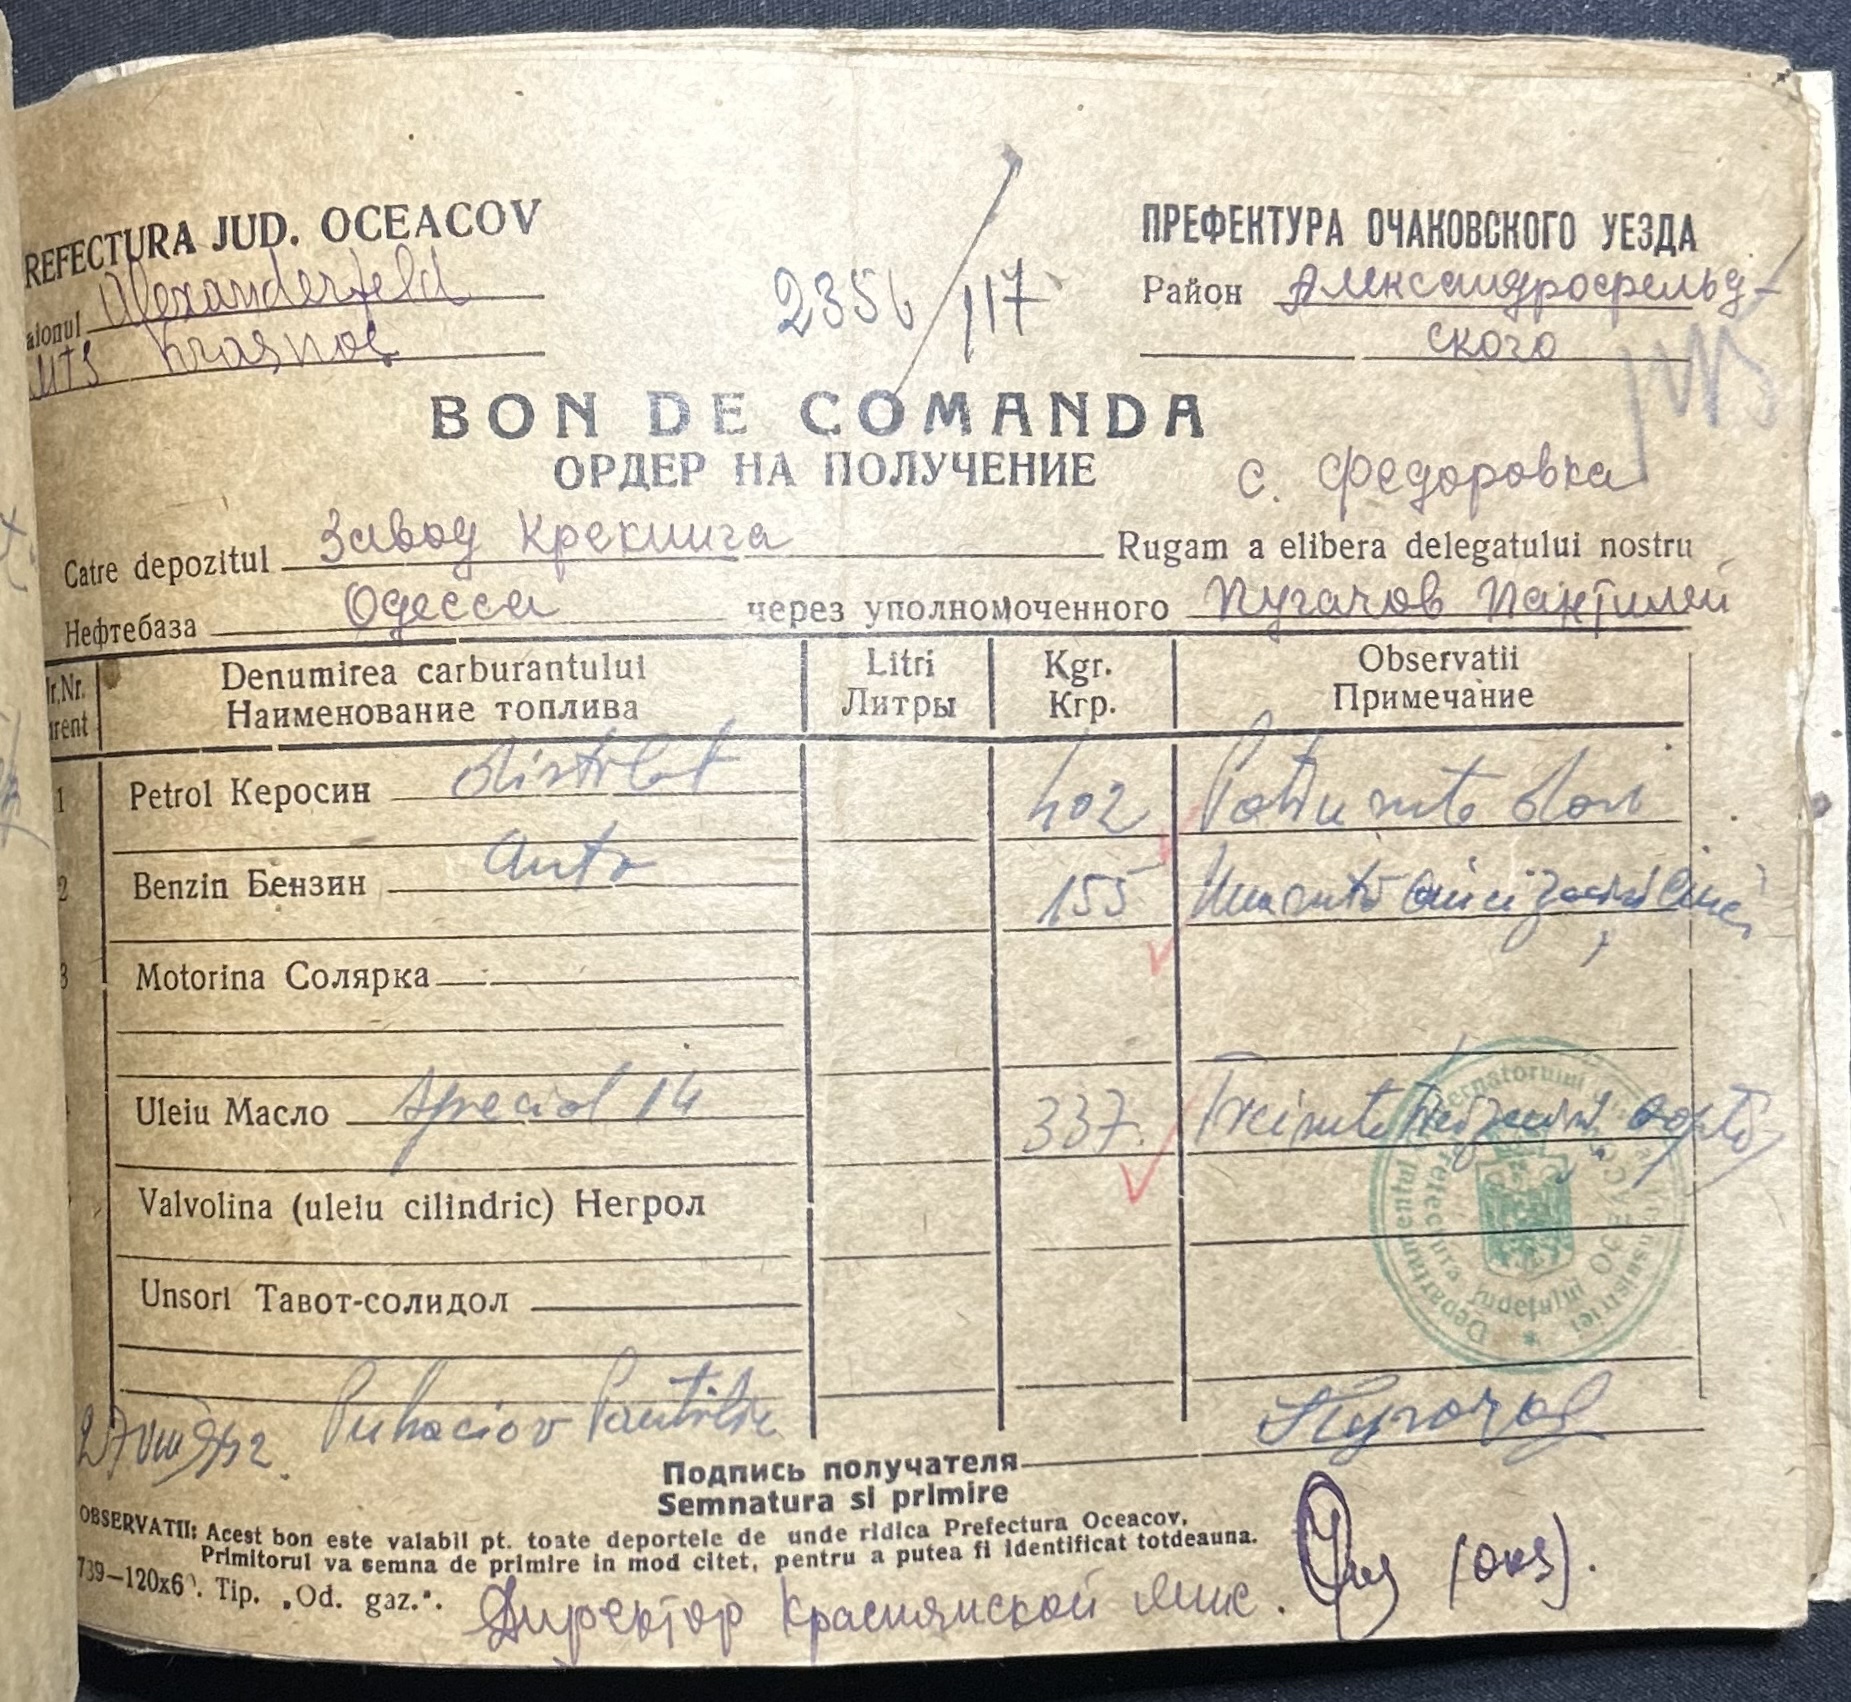 REFECTURA JUD. OCEACOV
aionul Alexanderfeld
MTS Krasnoe
2356/117
ПРЕФЕКТУРА ОЧАКОВСКОГО УЕЗДА
Район Александрофельд-
ского
BON DE COMANDA
ОРДЕР НА ПОЛУЧЕНИЕ
с. Федоровка
Catre depozitul Завод Крекинга Rugam a elibera delegatului nostru
Нефтебаза Одесса через уполномоченного Пугачов Пантилей
r.Nr. rent
Denumirea carburantului
Наименование топлива
Litri
Литры
Kgr.
Кгр.
Observatii
Примечание
1 Petrol Керосин distilat 402 Patru sute doi
2 Benzin Бензин auto 155 Una suta cinci zeci si cinci
3 Motorina Солярка
Uleiu Масло special 14 337. Trei sute trei zeci si sapte
Valvolina (uleiu cilindric) Негрол
Unsori Тавот-солидол
Departamentul Guvernatorului Transnistriei
Prefectura Județului OCEACOV
27 VIII 942. Puhaciov Pantilei
Пугачов
Подпись получателя
Semnatura si primire
OBSERVATII: Acest bon este valabil pt. toate deportele de unde ridica Prefectura Oceacov.
Primitorul va semna de primire in mod citet, pentru a putea fi identificat totdeauna.
739—120x6. Tip. „Od. gaz.".
Директор Краснянской ммс.